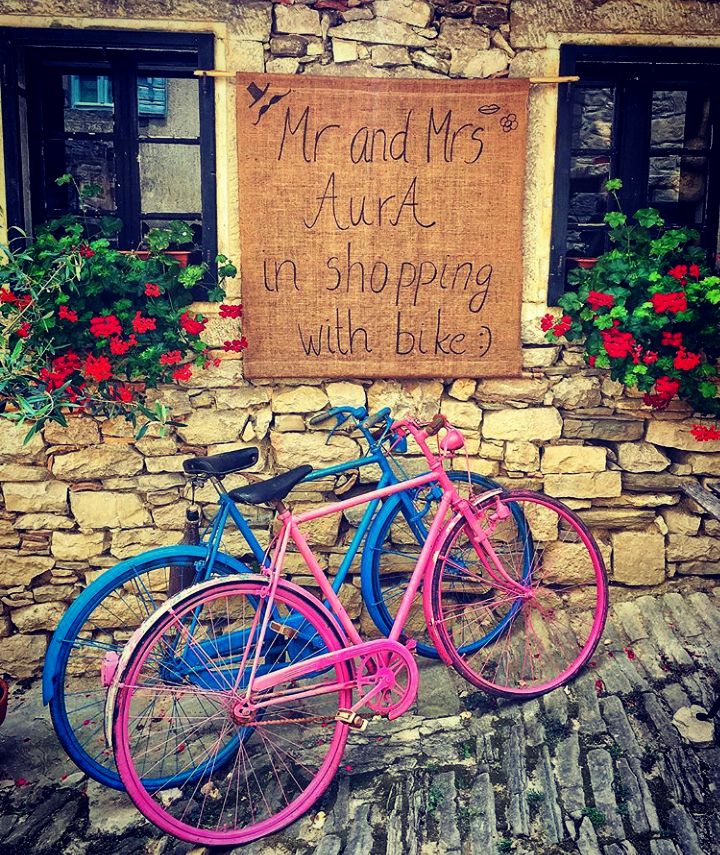 Mr and Mrs
AurA
in shopping
with bike :)